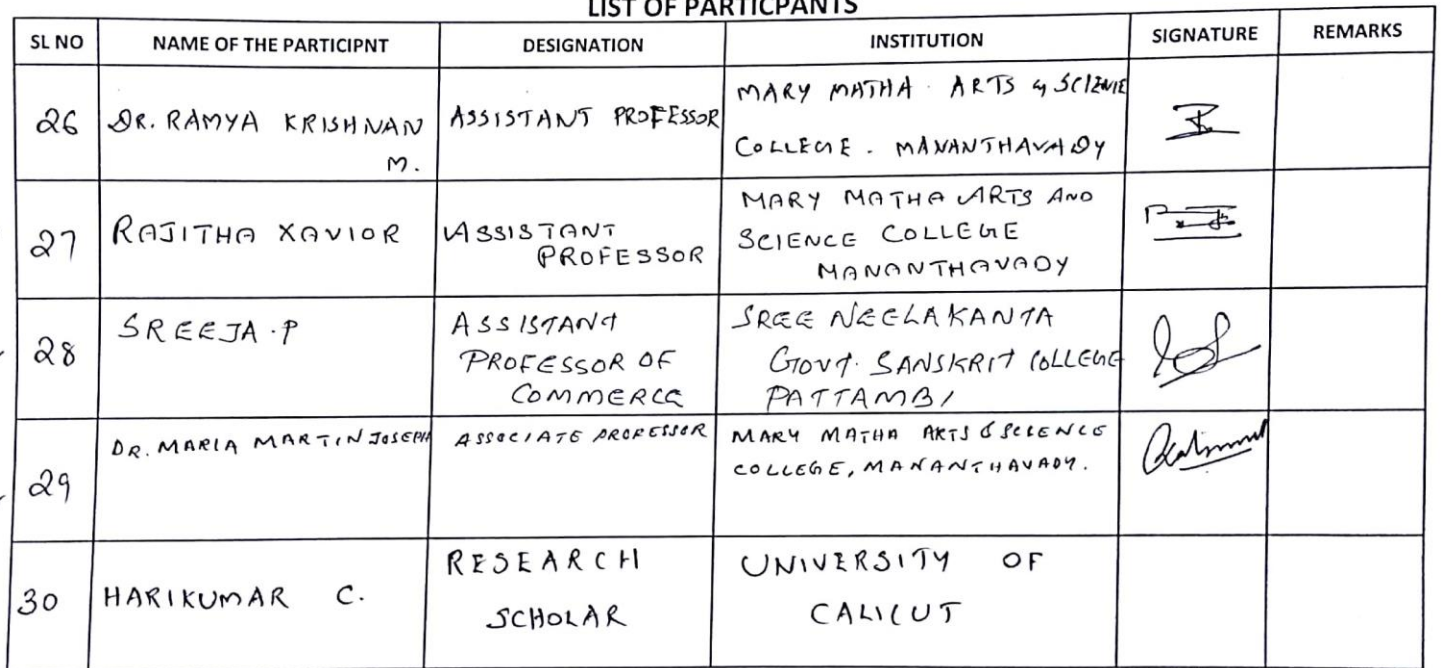 LIST OF PARTICPANTS
SL NO NAME OF THE PARTICIPNT DESIGNATION INSTITUTION SIGNATURE REMARKS
26 DR. RAMYA KRISHNAN M. ASSISTANT PROFESSOR MARY MATHA ARTS & SCIENCE COLLEGE. MANANTHAVADY
27 RAJITHA XAVIOR ASSISTANT PROFESSOR MARY MATHA ARTS AND SCIENCE COLLEGE MANANTHAVADY
28 SREEJA.P ASSISTANT PROFESSOR OF COMMERCE SREE NEELAKANTA GOVT. SANSKRIT COLLEGE PATTAMBI
29 DR. MARIA MARTIN JOSEPH ASSOCIATE PROFESSOR MARY MATHA ARTS & SCIENCE COLLEGE, MANANTHAVADY.
30 HARIKUMAR C. RESEARCH SCHOLAR UNIVERSITY OF CALICUT